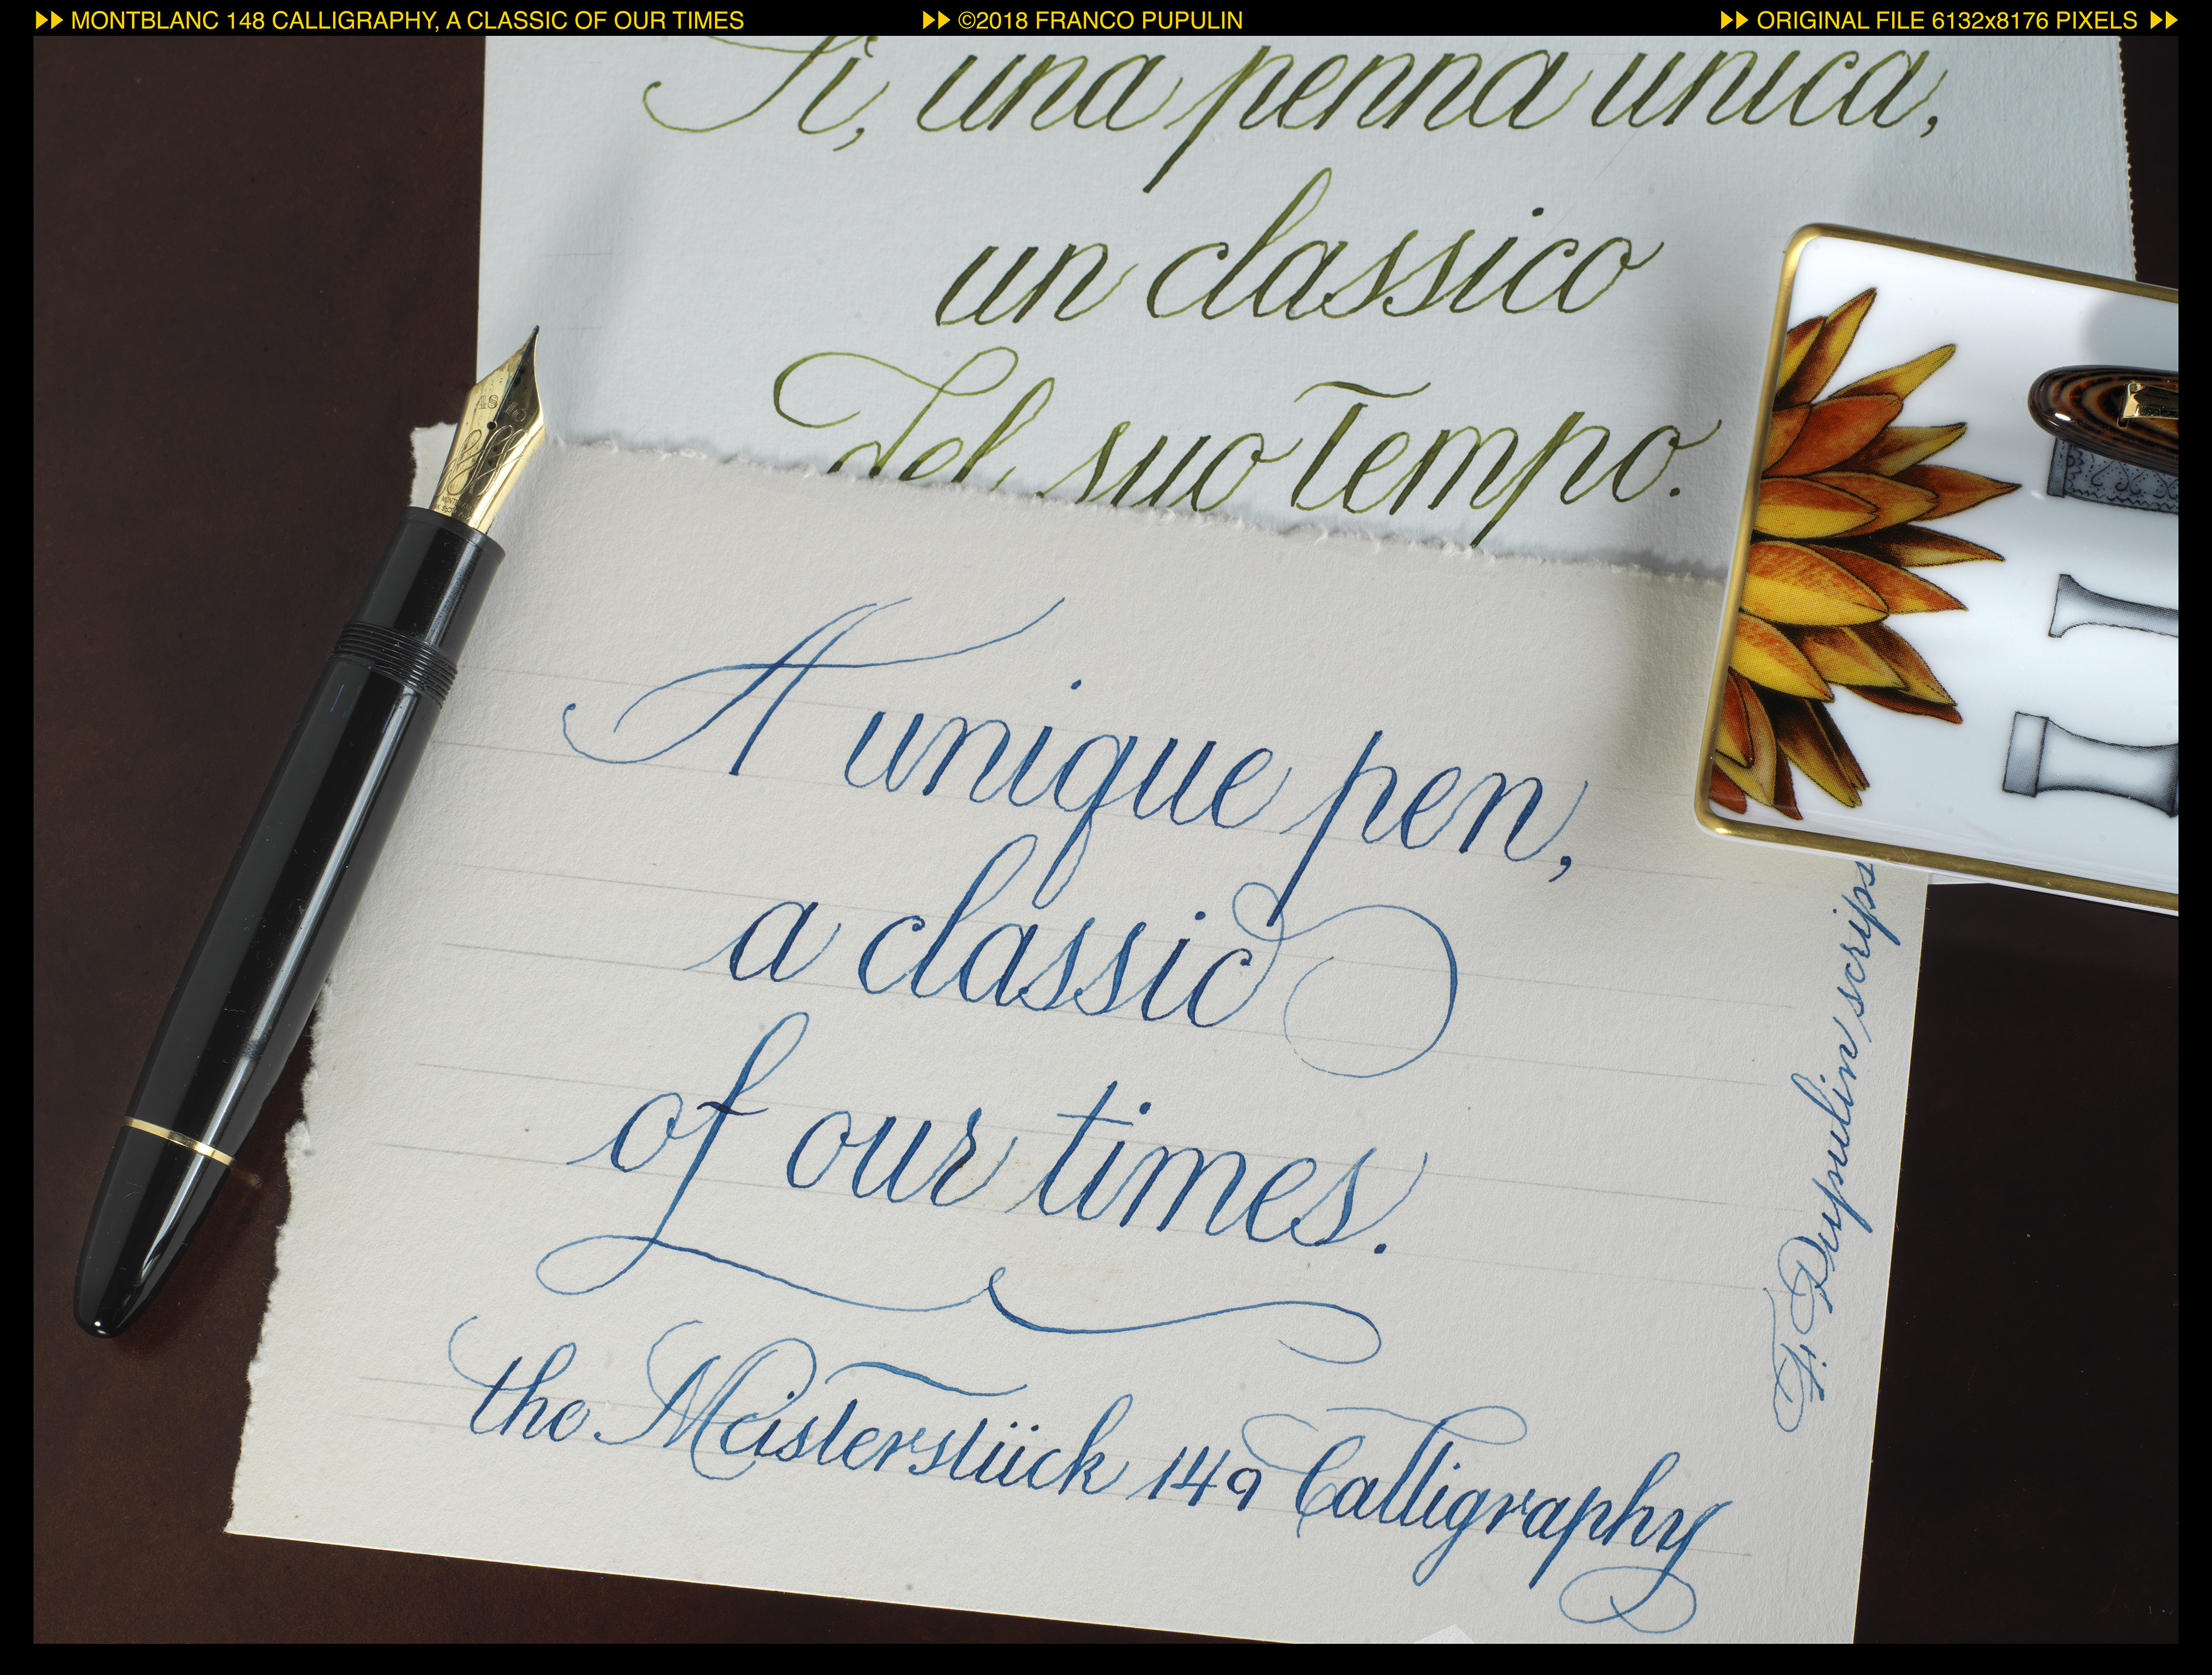 MONTBLANC 148 CALLIGRAPHY, A CLASSIC OF OUR TIMES
©2018 FRANCO PUPULIN
ORIGINAL FILE 6132x8176 PIXELS
Sì, una penna unica,
un classico
del suo Tempo.
A unique pen,
a classic
of our times.
the Meisterstück 149 Calligraphy
F. Pupulin scrips